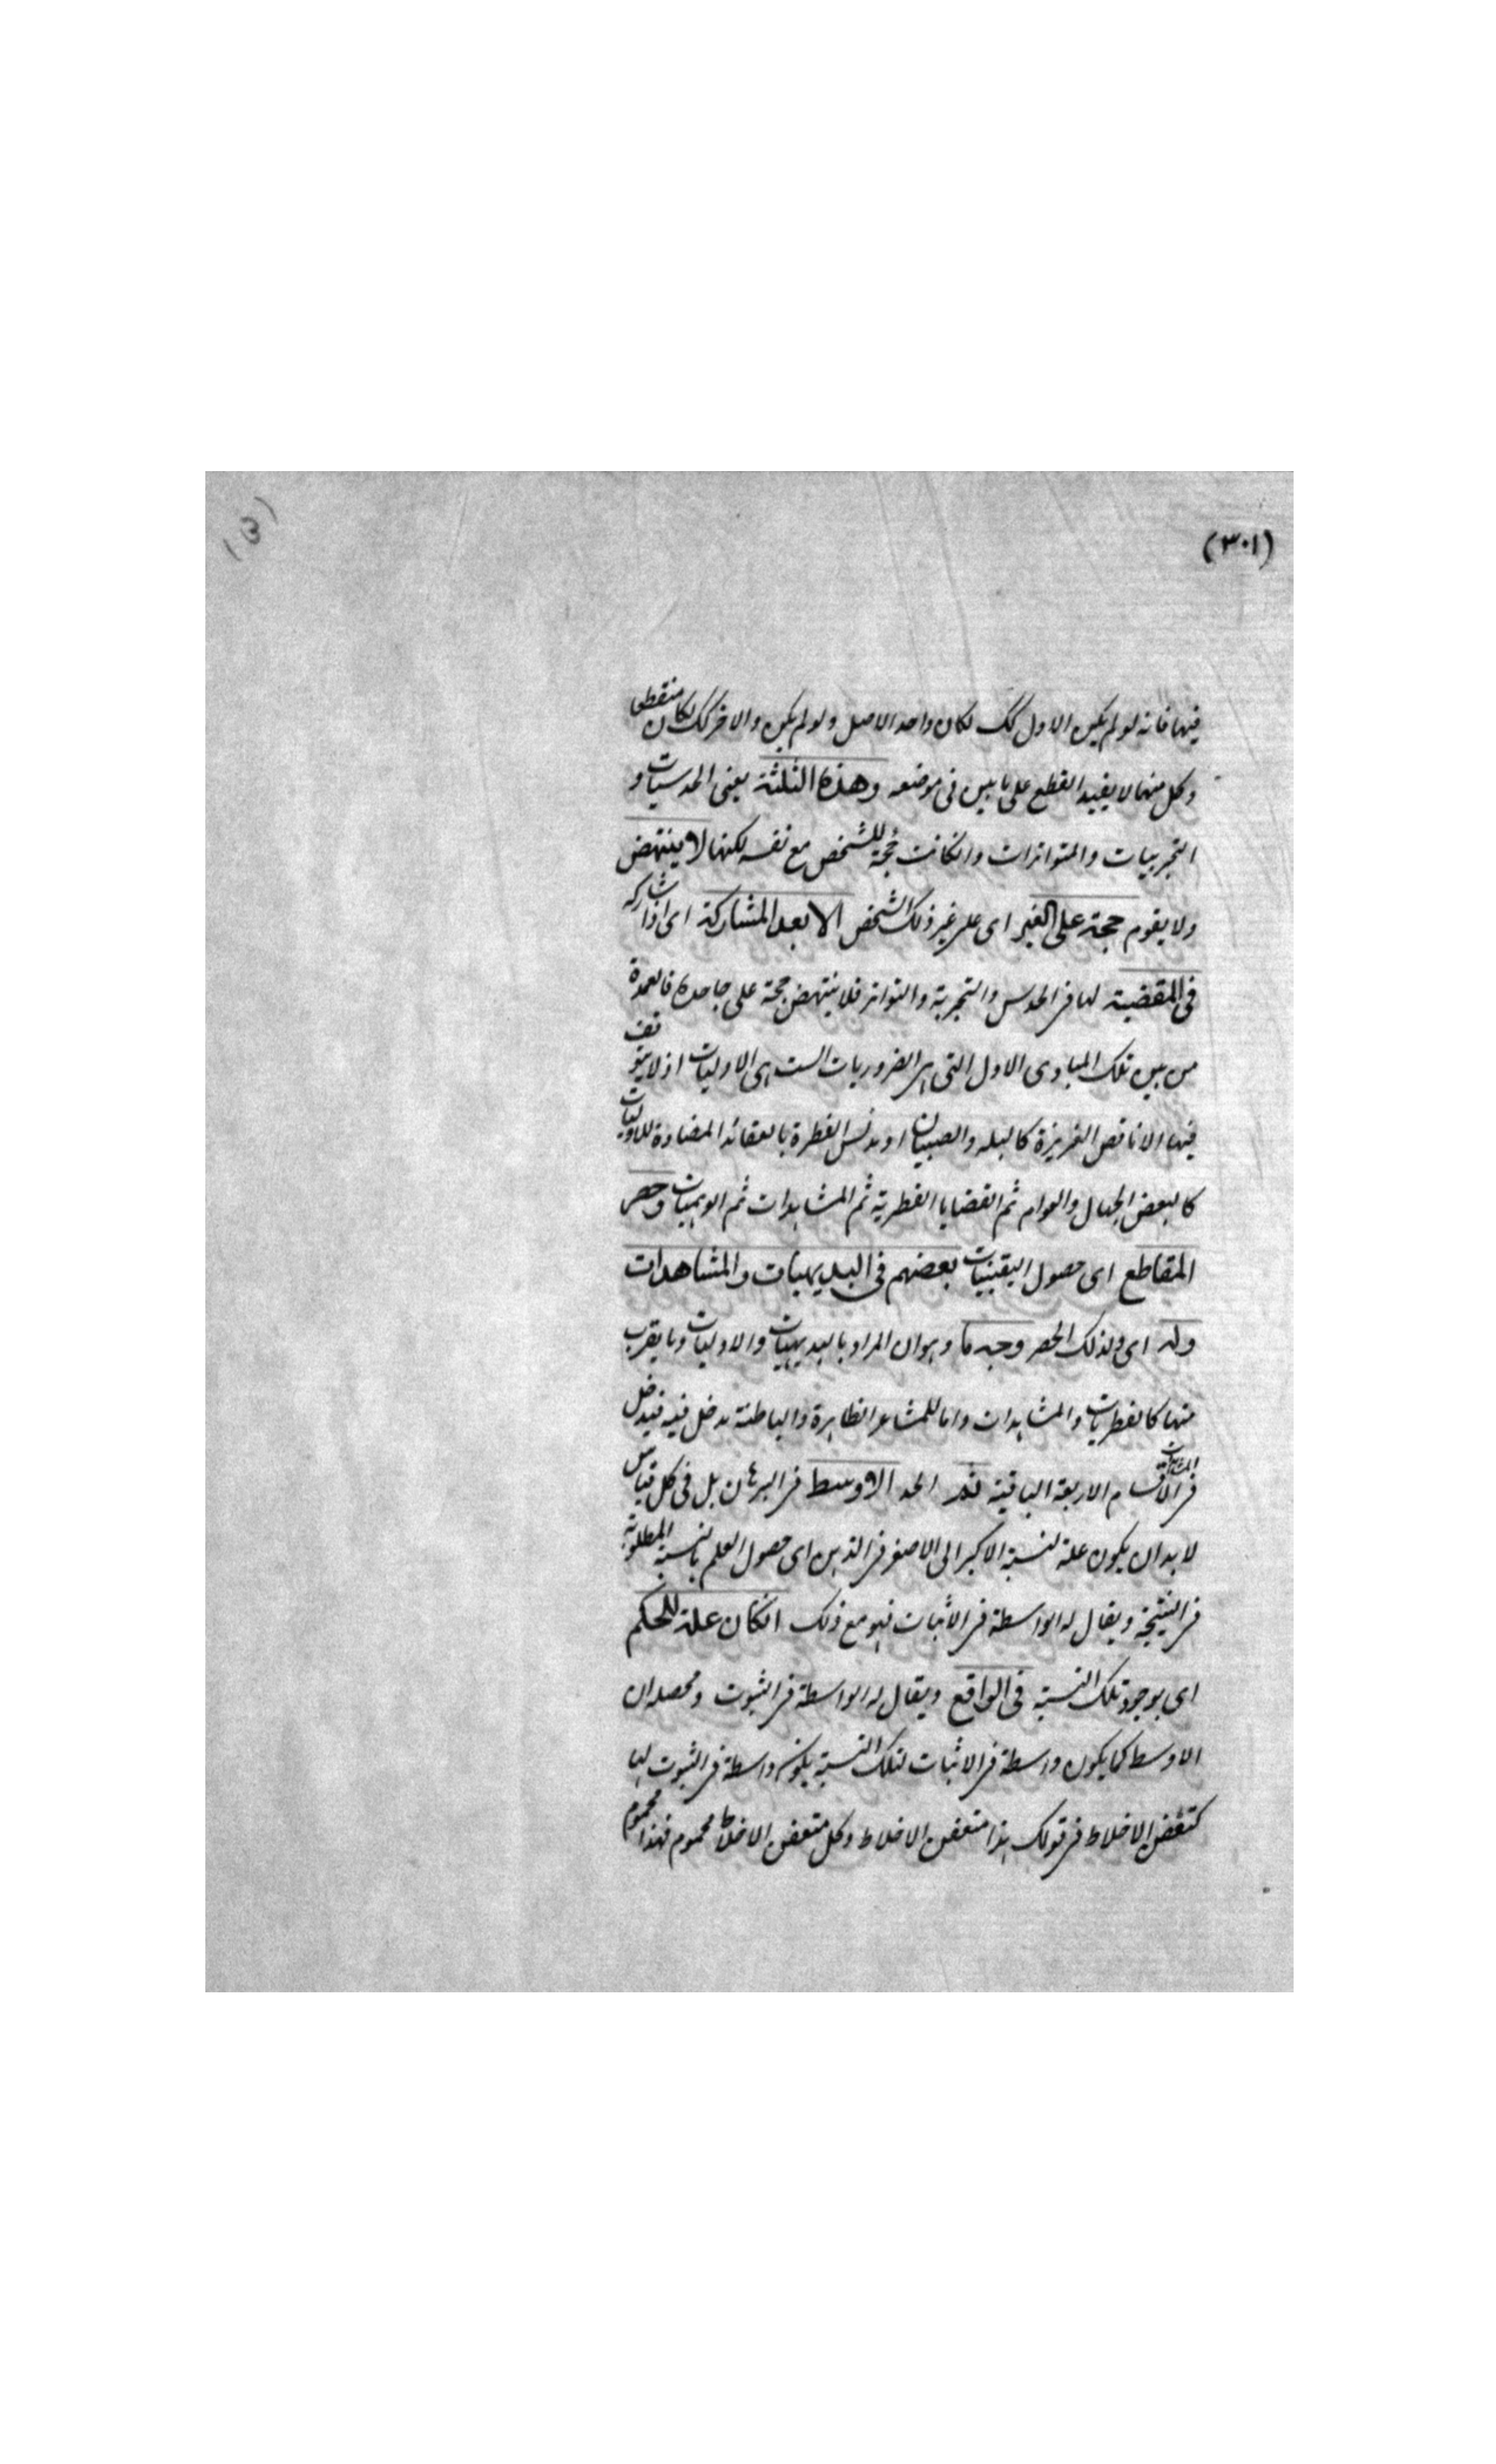 (٣٠١)
فيها فانه لو لم يكن الاول كك لكان واحد الاصل ولو لم يكن والاخر كك لكان منقطى
وكل منهما لا يفيد القطع على ما بين فى موضعه وهذه الثلثة يعنى الحدسيات و
التجربيات والمتواترات وانكانت حجة للشخص مع نفسه لكنها لا ينتهض
ولا يقوم حجة على الغير اى على غير ذلك الشخص الا بعد المشاركة اى اذا شاركه
فى المقضية لها فى الحدس والتجربة والتواتر فلا ينتهض حجة على جاحده فالعمدة
من بين تلك المبادى الاول التى هى الضروريات الست هى الاوليات اذ لا يتوقف
فيها الا ناقص الغريزة كالبله والصبيان او مدنس الفطرة بالعقائد المضادة للاوليات
كالبعض الجهال والعوام ثم القضايا الفطرية ثم المشاهدات ثم الوهميات وحصر
المقاطع اى حصول اليقينيات بعضهم فى البديهيات والمشاهدات
وله اى ولذلك الحصر وجه ما وهو ان المراد بالبديهيات والاوليات وما يقرب
منها كالفطريات والمشاهدات واما للمشاعر الظاهرة والباطنة مدخل فيه فيدخل
فى المشاهدات الاقسام الاربعة الباقية ثم الحد الاوسط فى البرهان بل فى كل قياس
لا بد ان يكون علة لنسبة الاكبر الى الاصغر فى الذهن اى حصول العلم بالنسبة المطلوبة
فى النتيجة ويقال له الواسطة فى الاثبات فهو مع ذلك انكان علة للحكم
اى بوجود تلك النسبة فى الواقع ويقال له الواسطة فى الثبوت ومحصله ان
الاوسط كما يكون واسطة فى الاثبات لتلك النسبة يكون واسطة فى الثبوت لها
كتعفن الاخلاط فى قولك هذا متعفن الاخلاط وكل متعفن الاخلاط محموم فهذا محموم